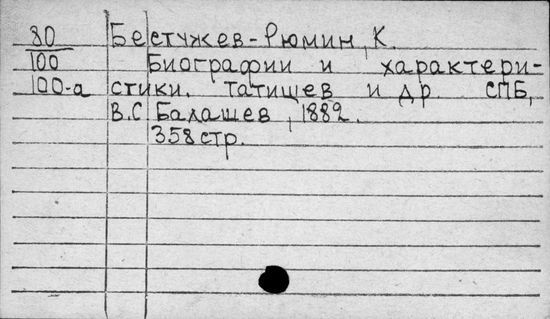 80 Бестужев-Рюмин, К.
100 Биографии и характери-
100-а стики. Татищев и др СПБ,
В.С Балашев, 1882.
358 стр.